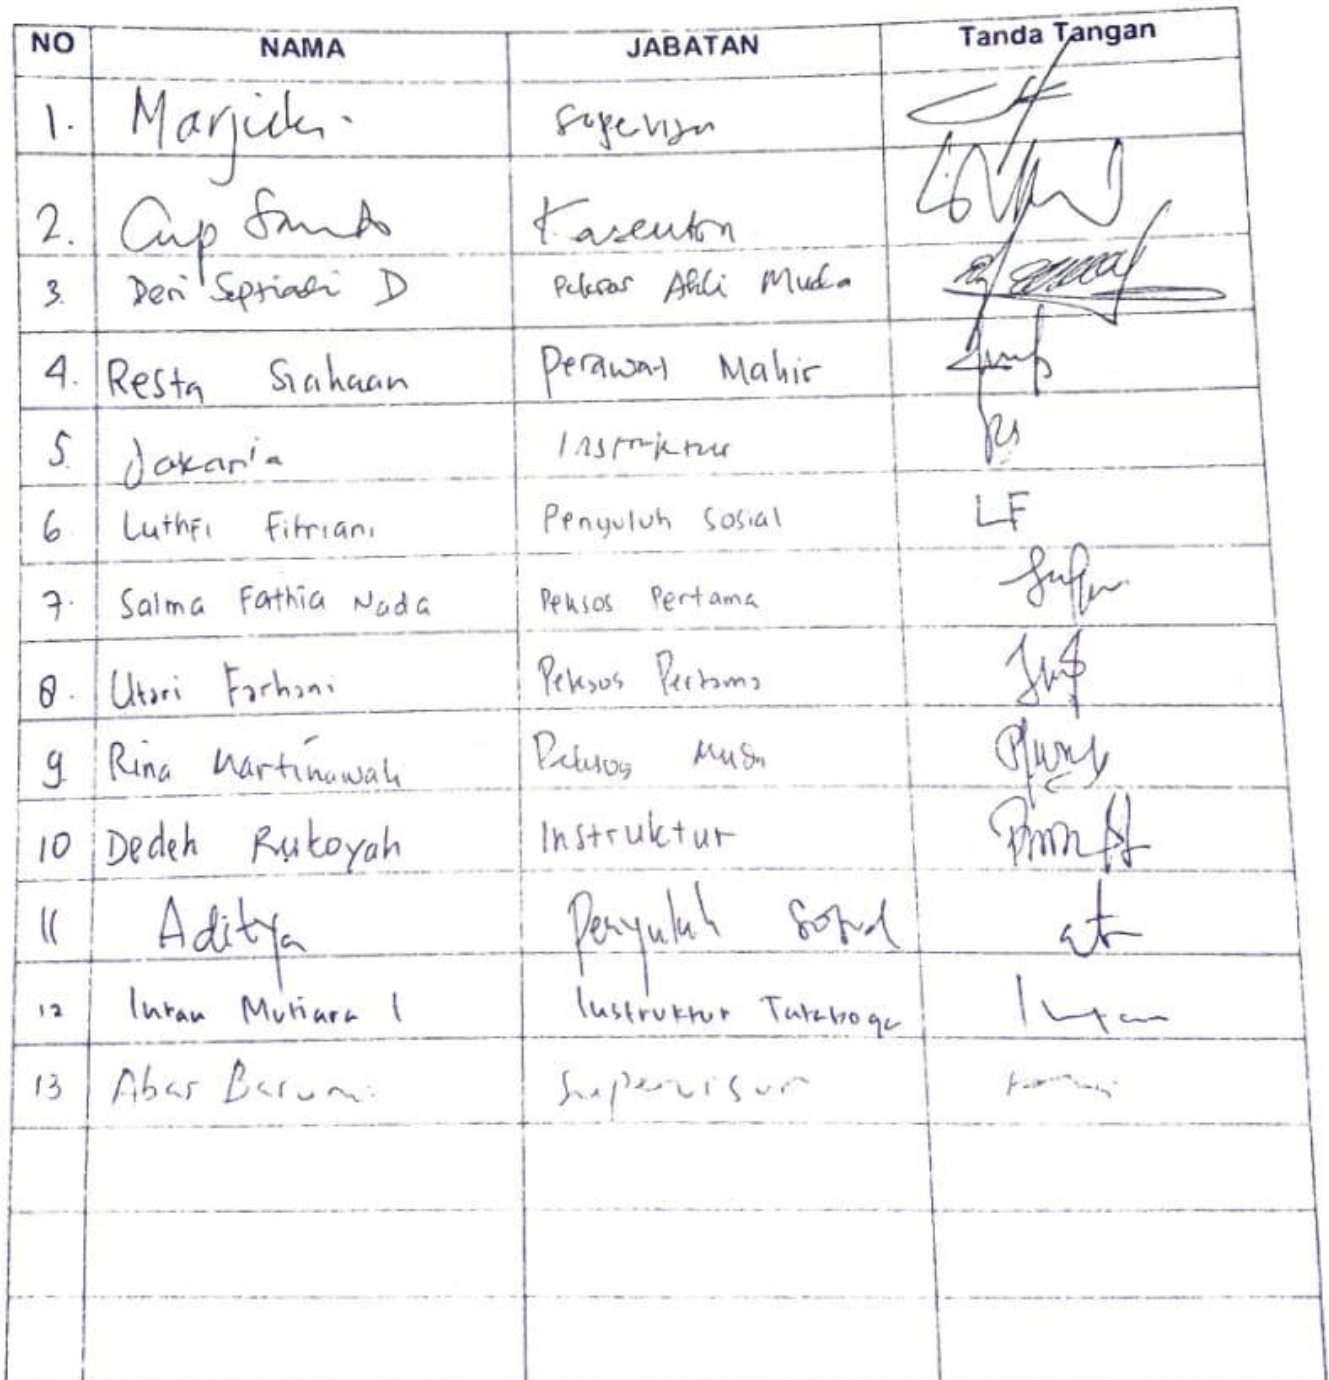 NO NAMA JABATAN Tanda Tangan
1. Marjuki. Supervisor
2. Cup Santo
3. Deri Septiadi D Peksos Ahli Muda
4. Resta Siahaan Perawat Mahir
5. Jakaria Instruktur
6. Luthfi Fitriani Penyuluh Sosial LF
7. Salma Fathia Nada Peksos Pertama
8. Utari Farhani Peksos Pertama
9 Rina Martinawati Peksos Muda
10 Dedeh Rukoyah Instruktur
11 Aditya Penyuluh Sosial
12 Intan Mutiara I Instruktur Tataboga Intan
13 Abas Basuni Supervisor